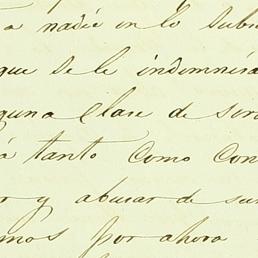 a nadie en lo subs
que se le indemnisa
guna clase de ser
á tanto como con
r y abusar de su
mos por ahora